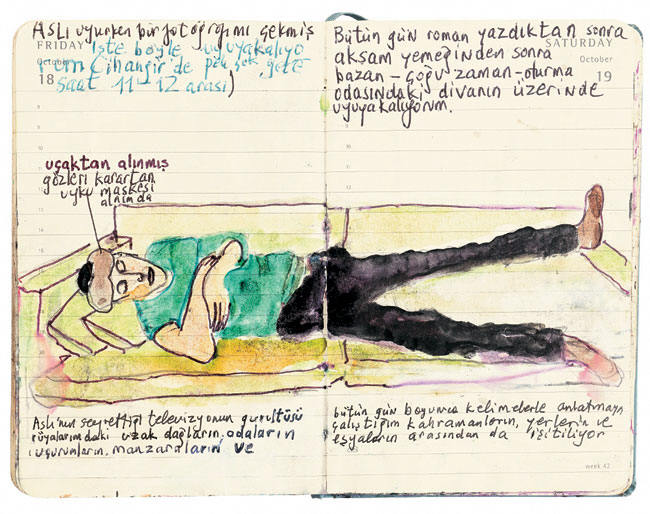 Aslı uyurken bir fotoğrafımı çekmiş
FRIDAY
October
18
işte böyle uyuyakalıyo
rum Cihangir'de pek çok gece
saat 11-12 arası)
Bütün gün roman yazdıktan sonra
akşam yemeğinden sonra
bazan - çoğu zaman - oturma
odasındaki divanın üzerinde
uyuyakalıyorum.
SATURDAY
October
19
uçaktan alınmış
gözleri karartan
uyku maskesi
alnımda
Aslı'nın seyrettiği televizyonun gürültüsü
rüyalarımdaki uzak dağların, odaların
uçurumların, manzaraların ve
bütün gün boyunca kelimelerle anlatmaya
çalıştığım kahramanların, yerlerin ve
eşyaların arasından da işitiliyor
week 42